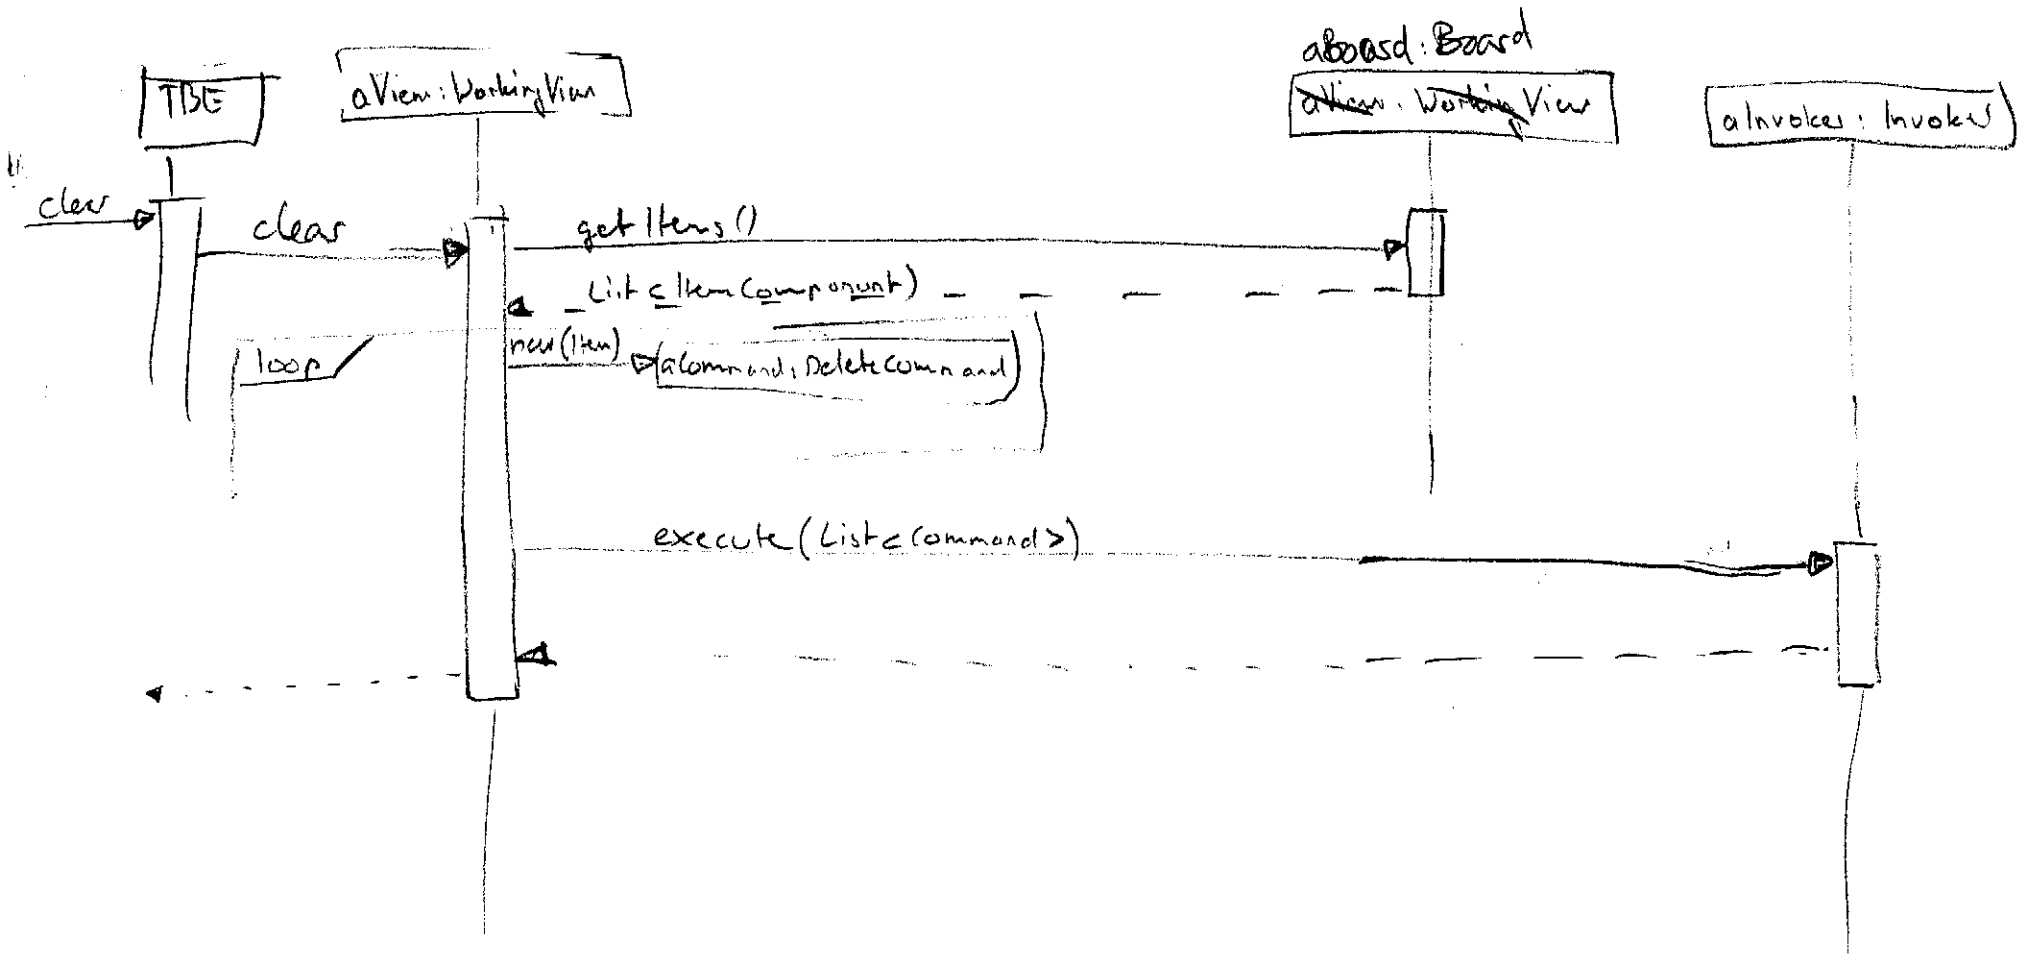 aBoard: Board
TBE
aView: WorkingView
aView: WorkingView
aInvoker: Invoker
clear
clear
getItems()
List<ItemComponent)
loop
new(Item)
aCommand: DeleteCommand
execute(List<Command>)